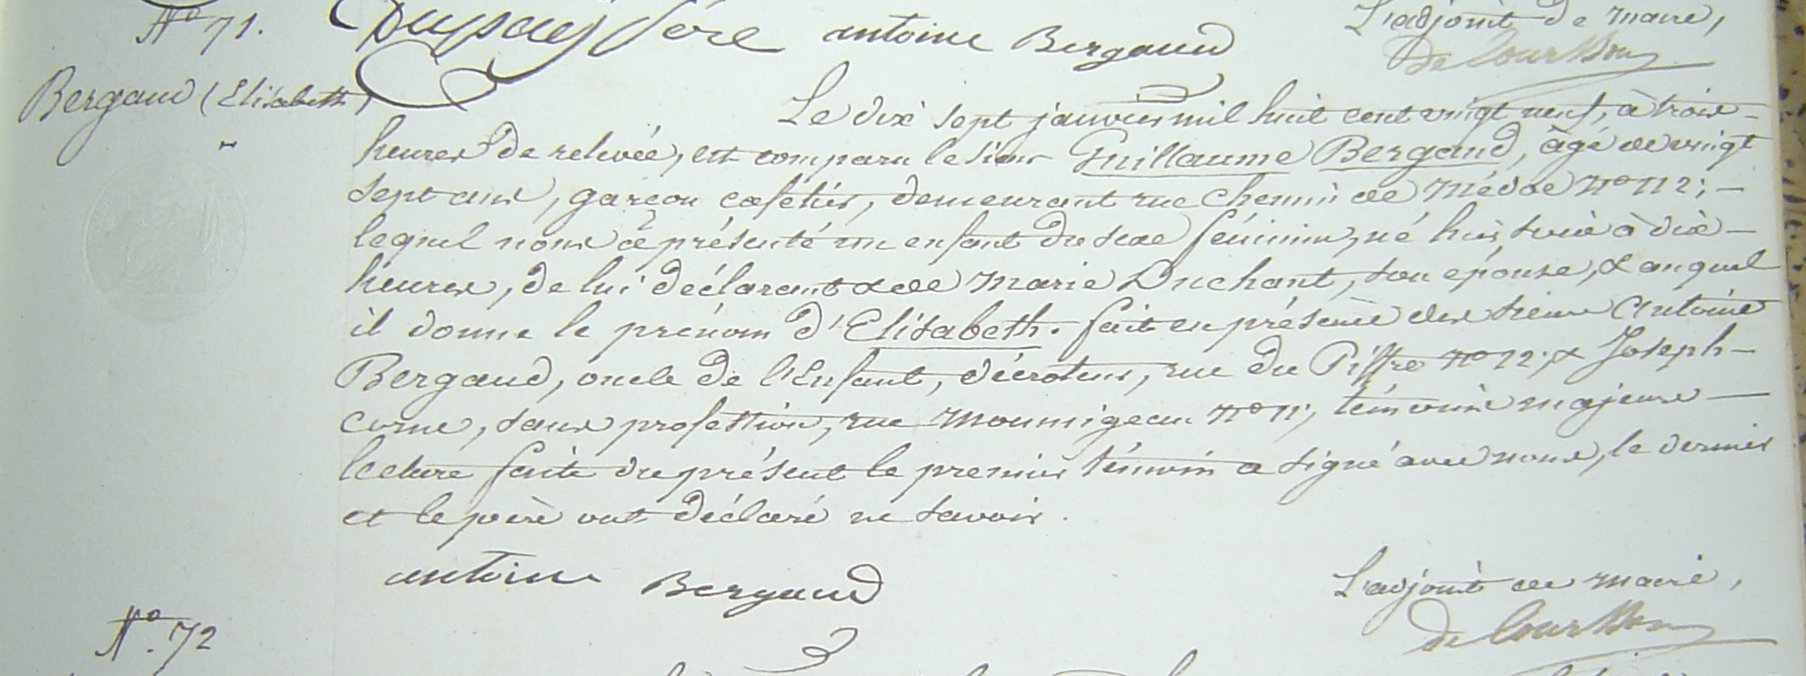 No 71. Dupuy père antoine Bergaud L'adjoint de maire,
Bergaud (Elisabeth)
Le dix sept janvier mil huit cent vingt neuf, à trois
heures de relevée, est comparu le sieur Guillaume Bergaud, âgé de vingt
sept ans, garçon cafetier, demeurant rue chemin de Médoc No 112; —
lequel nous a présenté un enfant du sexe féminin, né hier soir à dix —
heures, de lui déclarant & de Marie Duchant, son épouse, & auquel
il donne le prénom d'Elisabeth. fait en présence des sieurs Antoine
Bergaud, oncle de l'Enfant, décroteur, rue du Piffre No 12; & Joseph —
, sans profession, rue No 11, témoins majeurs —
lecture faite du présent le premier témoin a signé avec nous, le dernier
et le père ont déclaré ne savoir.
antoine Bergaud L'adjoint de maire,
No. 72